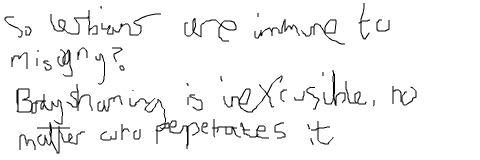 So lesbians are immune to
misogny?
Bodyshaming is inexcusible, no
matter who perpetrates it